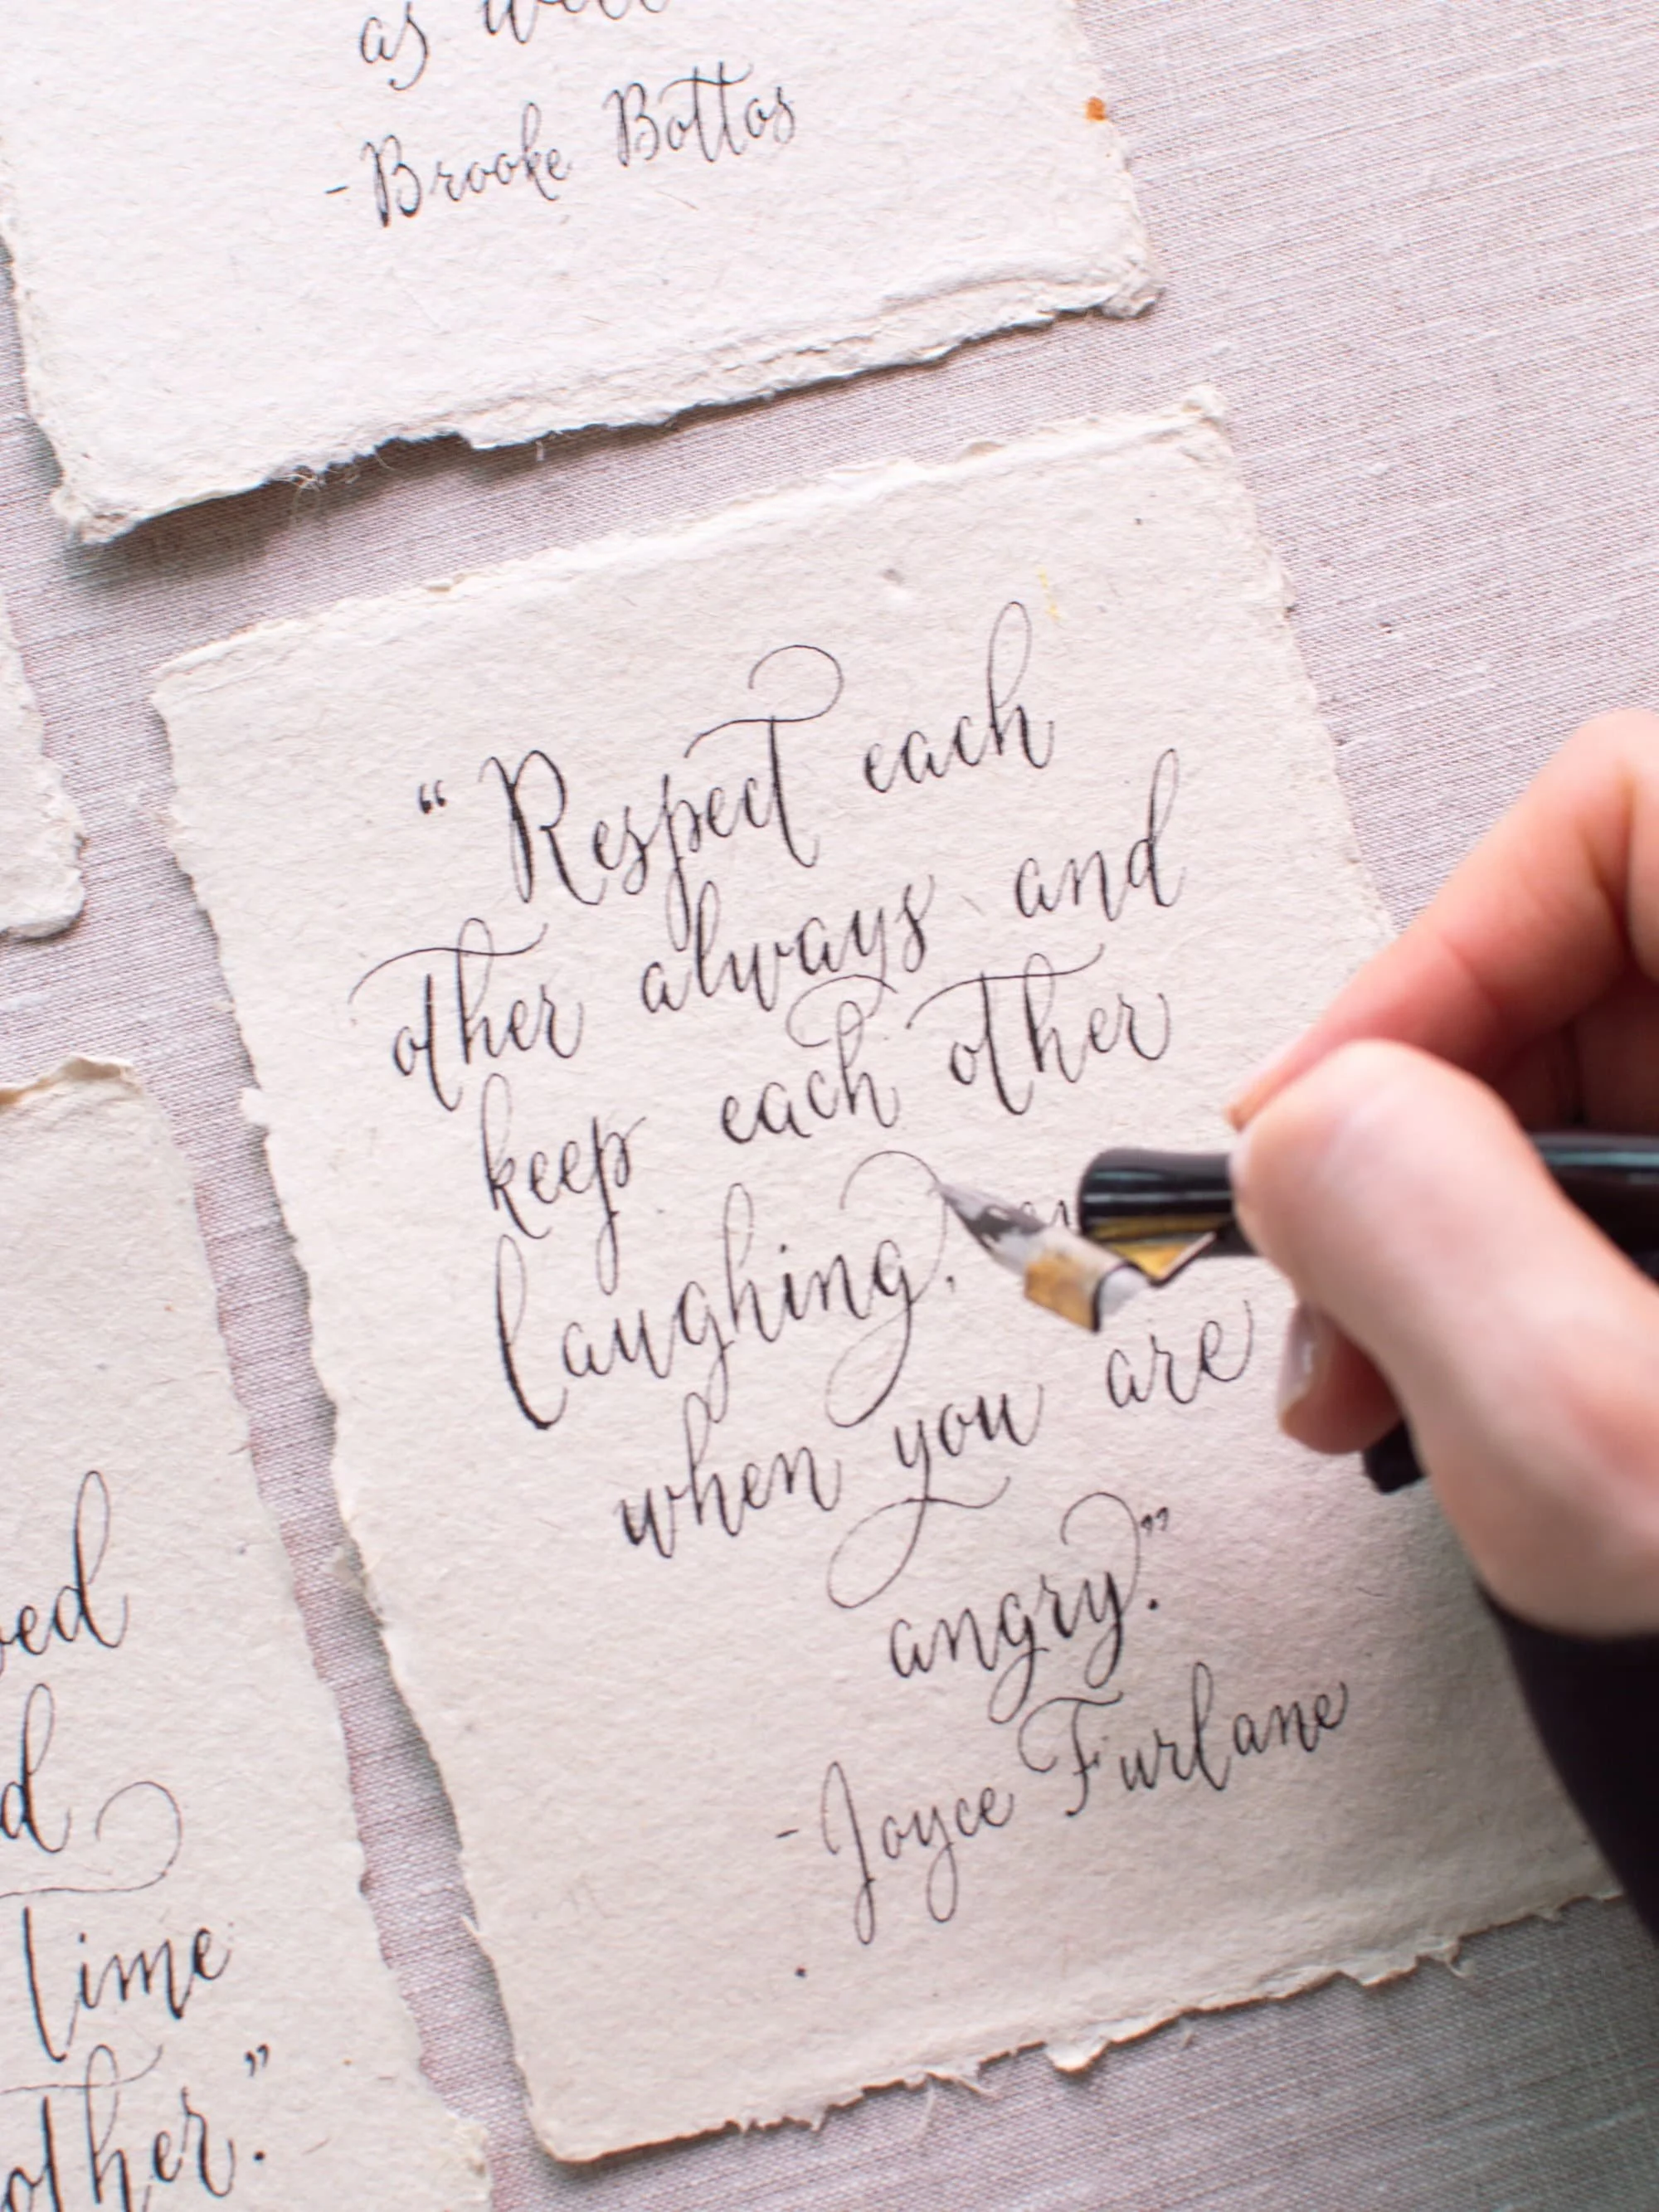 as well
-Brooke Bottos
“Respect each
other always and
keep each other
laughing,
when you are
angry.”
-Joyce Furlane
d
time
other.”